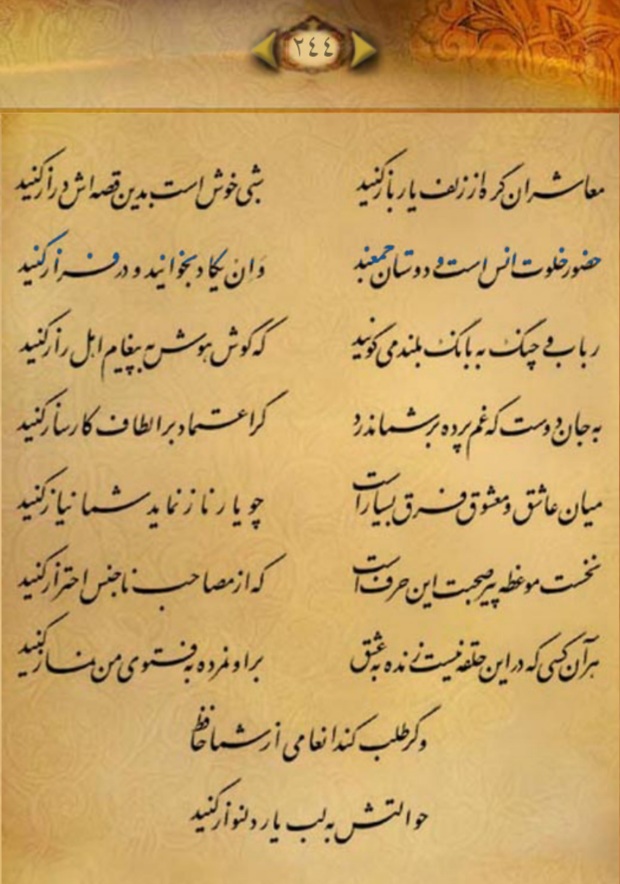 ۲۴۴
معاشران گره از زلف یار باز کنید
شبی خوش است بدین قصه‌اش دراز کنید
حضور خلوت انس است و دوستان جمعند
وَاِنْ یَکاد بخوانید و در فراز کنید
رباب و چنگ به بانگ بلند می‌گویند
که گوش هوش به پیغام اهل راز کنید
به جان دوست که غم پرده بر شما ندرد
گر اعتماد بر الطاف کارساز کنید
میان عاشق و معشوق فرق بسیار است
چو یار ناز نماید شما نیاز کنید
نخست موعظه پیر صحبت این حرف است
که از مصاحب ناجنس احتراز کنید
هر آن کسی که در این حلقه نیست زنده به عشق
بر او نمرده به فتوی من نماز کنید
وگر طلب کند انعامی از شما حافظ
حوالتش به لب یار دلنواز کنید